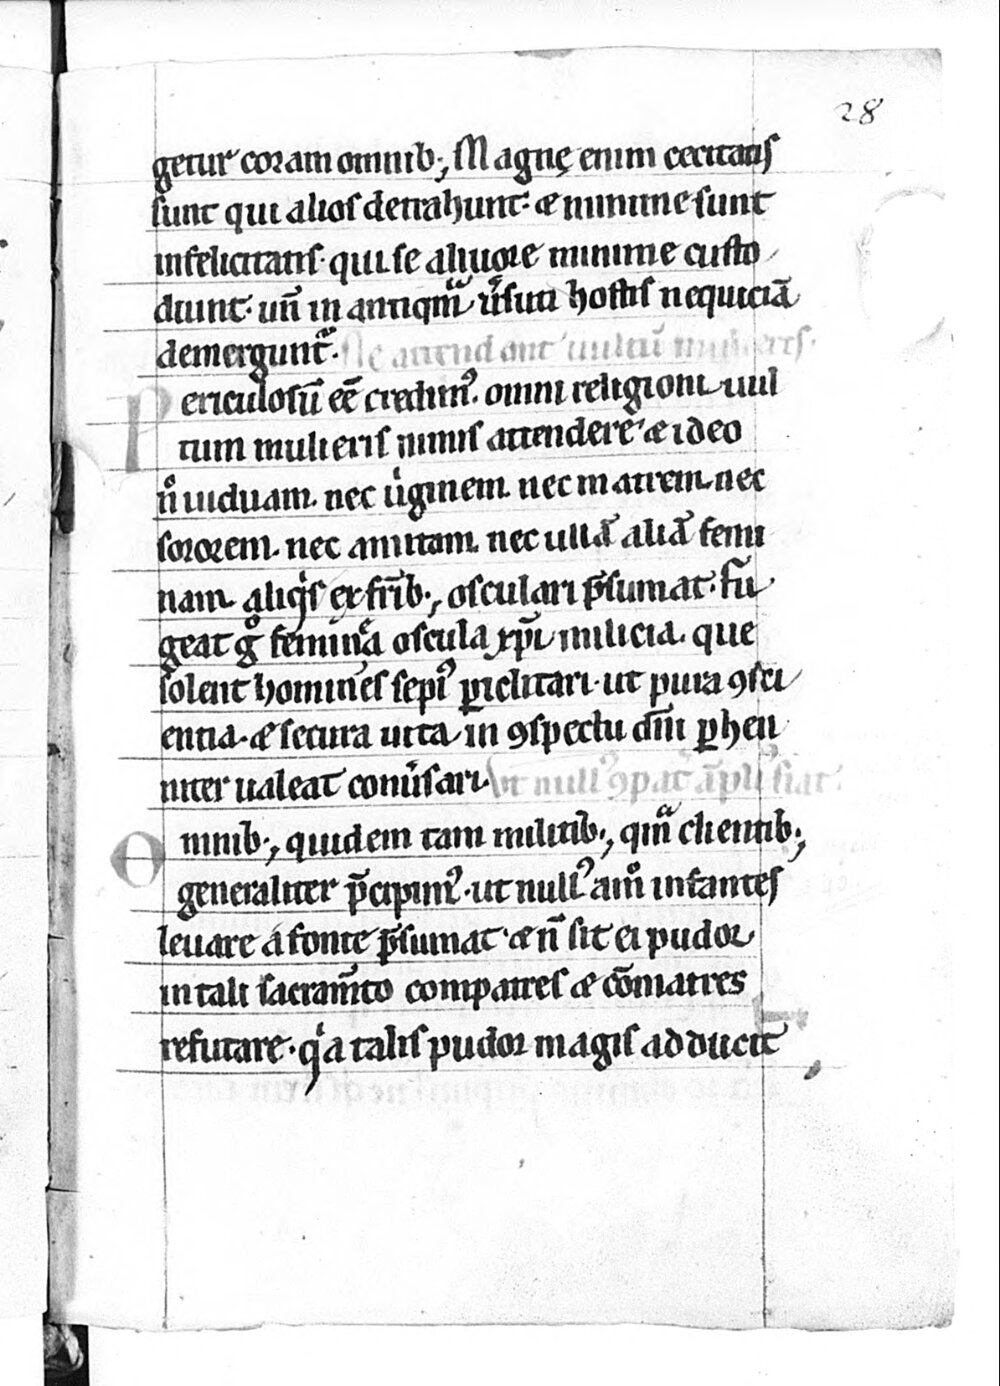 28
getur coram omnib; Magnę enim cecitatis
sunt qui alios detrahunt· & nimine sunt
infelicitatis· qui se aliuore minime custo
diunt· uñ in antiqͫ ũsuti hostis nequiciā
demergunt.
Ne attendant uultū mulieris.
Periculosū eē credimꝰ omni religioni uul
tum mulieris nimis attendere & ideo
n̊ uiduam. nec uͥginem nec matrem nec
sororem. nec amitam nec ullā aliā femi
nam aliqͥs ex fr̄ib; osculari p̄sumat· fu
geat gͦ feminea oscula xp̄i milicia. que
solent homines sepiꝰ ꝑiclitari· ut pura ꝯsci
entia· & secura uita in ꝯspectu dñi ꝑhen
niter ualeat conuͥsari.
Vt nullꝰ ꝯpat̾ āpliꝰ fiat.
Omnib; quidem tam militib; qͫ clientib;
generaliter p̄cipimꝰ· ut nullꝰ amͦ infantes
leuare á fonte p̄sumat· & ñ sit ei pudor
in tali sacram̄to compatres & cōmatres
refutare· qͥa talis pudor magis adducit